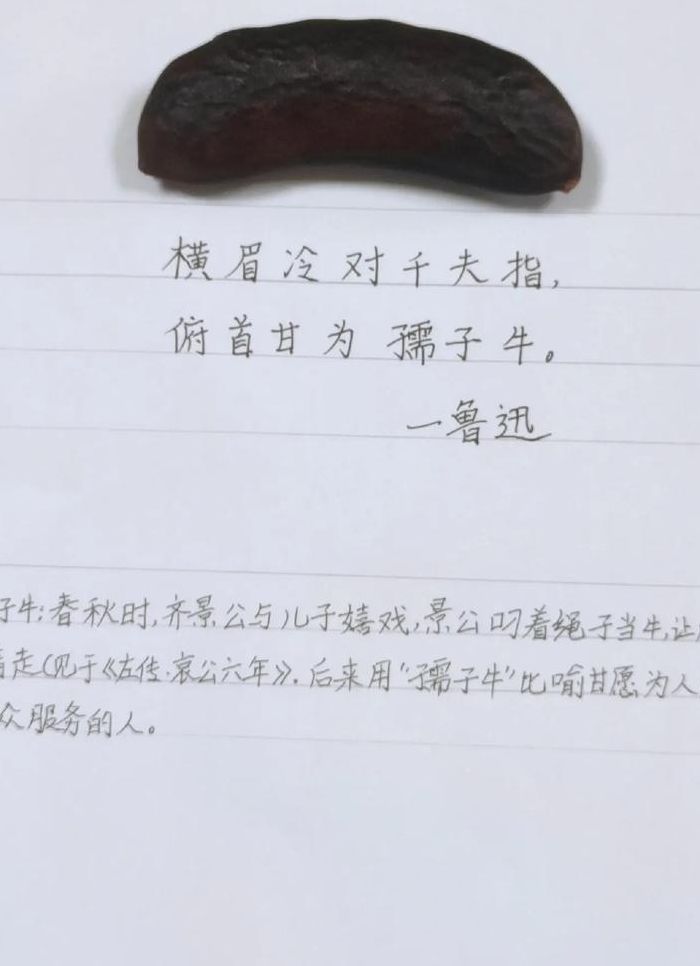 横眉冷对千夫指,
俯首甘为孺子牛。
一鲁迅
子牛:春秋时,齐景公与儿子嬉戏,景公叼着绳子当牛,让
着走(见于《左传·哀公六年》.后来用"孺子牛"比喻甘愿为人
众服务的人。